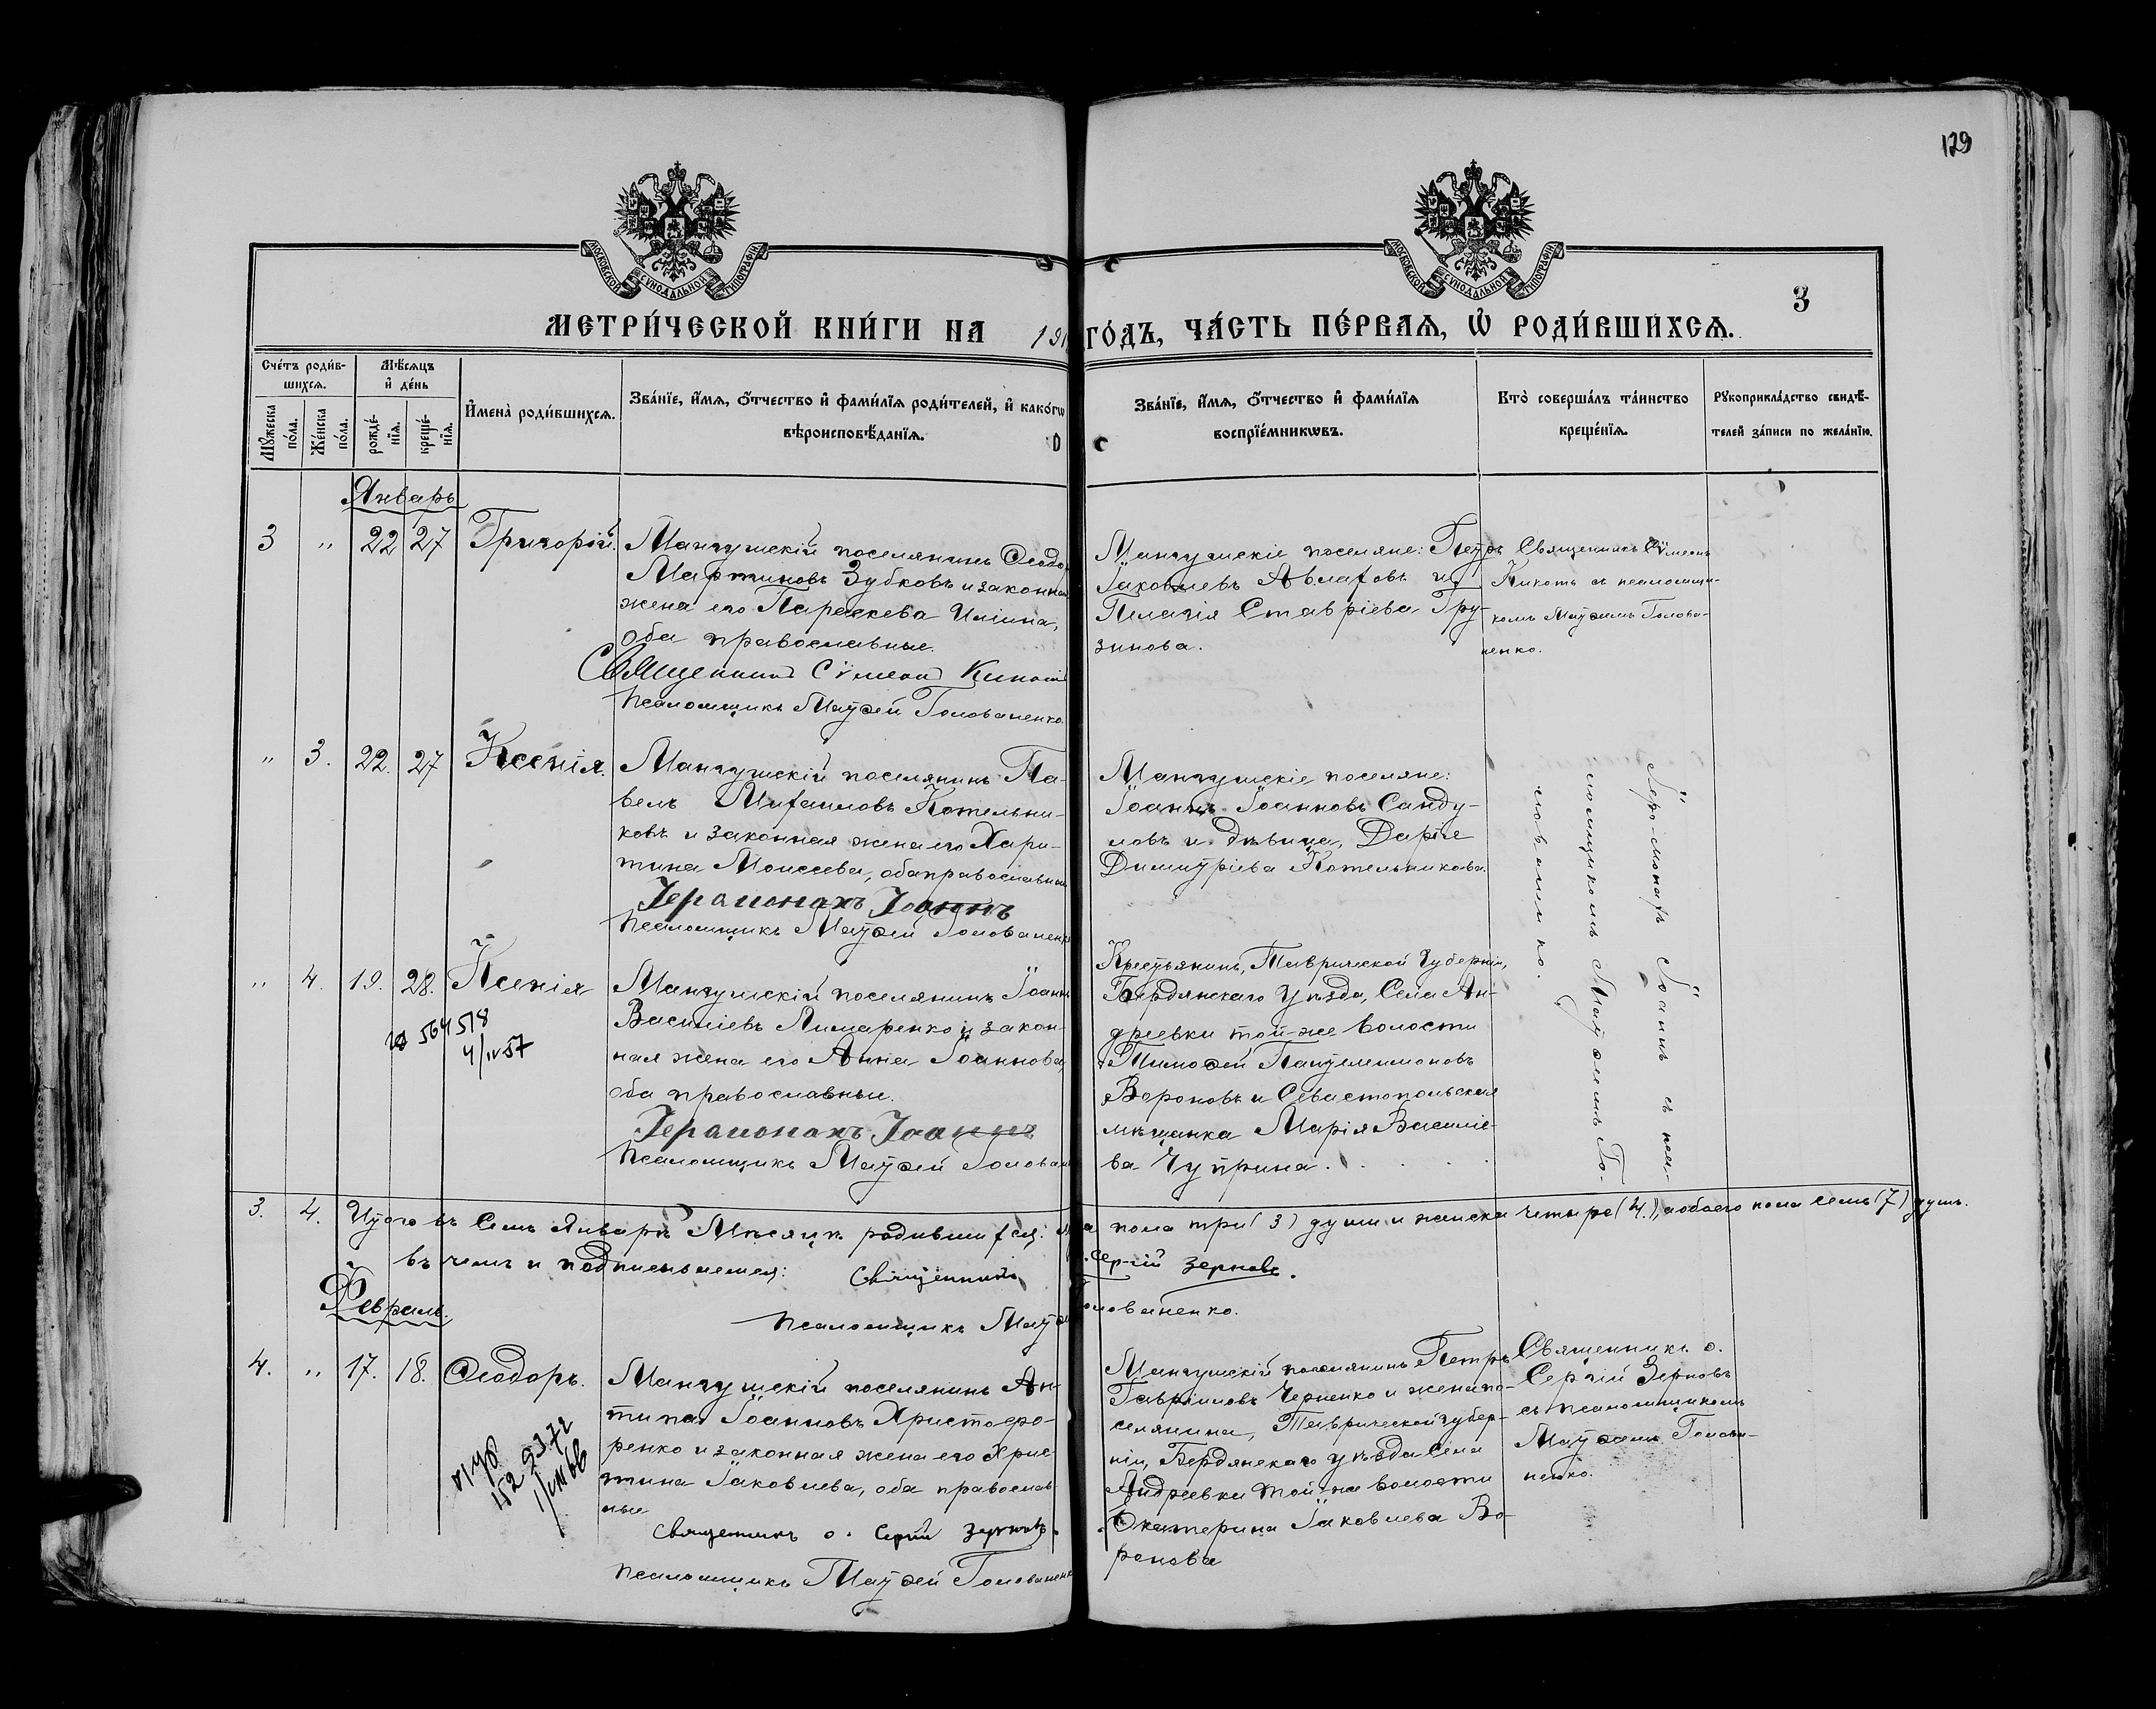 129
МОСКОВСКОЙ СѴНОДАЛЬНОЙ ТИПОГРАФІИ
МОСКОВСКОЙ СѴНОДАЛЬНОЙ ТИПОГРАФІИ
3
МЕТРИ́ЧЕСКОЙ КНИ́ГИ НА 191 ГО́ДЪ, ЧА́СТЬ ПЕ́РВАѦ, Ѡ҆ РОДИ́ВШИХСѦ.
Сче́тъ роди́в-
шихсѧ.
Мѣ́сѧцъ
и҆ де́нь
Мꙋ́жеска
по́ла.
Же́нска
по́ла.
рожде́-
нїѧ.
креще́-
нїѧ.
И҆мена̀ роди́вшихсѧ.
Зва́нїе, и҆́мѧ, ѻ҆́тчество и҆ фами́лїѧ роди́телей, и҆ како́гѡ
вѣроисповѣ́данїѧ.
Зва́нїе, и҆́мѧ, ѻ҆́тчество и҆ фами́лїѧ
воспрїе́мникѡвъ.
Кто̀ соверша́лъ та́инство
креще́нїѧ.
Рꙋкоприкла́дство свидѣ́-
телей за́писи по жела́нїю.
Январь
3 " 22 27 Григорій.
Мангушскій поселянинъ Ѳеодо
Мартиновъ Зубковъ и законная
жена его Параскева Иліина,
оба православные.
Священникъ Сѵмеонъ Кикоть
Псаломщикъ Матѳей Голованенко.
Мангушскіе поселяне: Петръ
Іаковлевъ Авлаховъ и
Пелагія Ставріева Гру-
зинова.
Священникъ Сѵмеонъ
Кикоть съ псаломщи-
комъ Матѳеемъ Голова-
ненко.
" 3. 22. 27 Ксенія.
Мангушскій поселянинъ Па-
велъ Михаиловъ Котельни-
ковъ и законная жена его Хари-
тина Моисеева, оба православные
Іеромонахъ Іоаннъ
Псаломщикъ Матѳей Голованенко
Мангушскіе поселяне:
Іоаннъ Іоанновъ Санду-
ловъ и дѣвица, Дарія
Димитріева Котельникова.
Іеро-монахъ Іоаннъ съ пса-
ломщикомъ Матѳеемъ Го-
лованенко.
" 4. 19. 28. Ксенія
564518
4/IV 57
Мангушскій поселянинъ Іоаннъ
Василіевъ Лимаренко и закон-
ная жена его Анна Іоаннова,
оба православные.
Іеромонахъ Іоаннъ
Псаломщикъ Матѳей Голован
Крестьянинъ, Таврической Губерніи,
Бердянскаго уѣзда, Села Ан-
дреевки той-же волости
Тимоѳей Пантелимоновъ
Вороновъ и Севастопольская
мѣщанка Марія Василіе-
ва Чуприна.
3. 4. Итого въ Семъ Январѣ Мѣсяцѣ родившихся: м а пола три (3) души и женска четыре (4.), а обоего пола семь (7) душъ.
въ чемъ и подписываемся: Священникъ Сергій Зерновъ.
Псаломщикъ Матѳ оловаленко.
Февраль.
4. " 17. 18. Ѳеодоръ.
Мангушскій поселянинъ Ан-
типа Іоанновъ Христофо-
ренко и законная жена его Хрис-
тина Іаковлева, оба православ-
ные
Священникъ о. Сергій Зерновъ.
Псаломщикъ Матѳей Голованенк
Мангушскій поселянинъ Петръ
Гавріиловъ Черненко и жена по-
селянина, Таврической губер-
ніи, Бердянскаго уѣзда Села
Андреевки той-же волости
Екатерина Іаковлева Во-
ронова
Священникъ о.
Сергій Зерновъ
съ псаломщикомъ
Матѳеемъ Голова-
ненко.